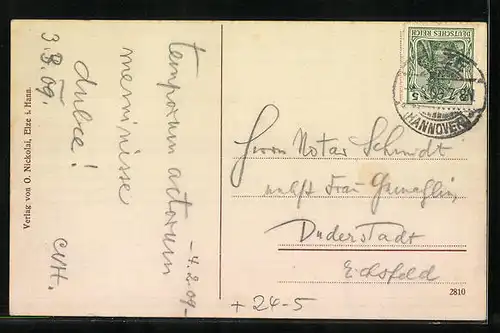 Verlag von O. Nickolai, Elze i. Hann.
3. 8. 09.
dulce!
meminisse
temporum actorum
- 4. 2. 09 -
CVH.
DEUTSCHES REICH
HANNOVER
Herrn Notar Schmidt
nebst Frau Gemahlin,
Duderstadt
Eichsfeld
+ 24-5
2810